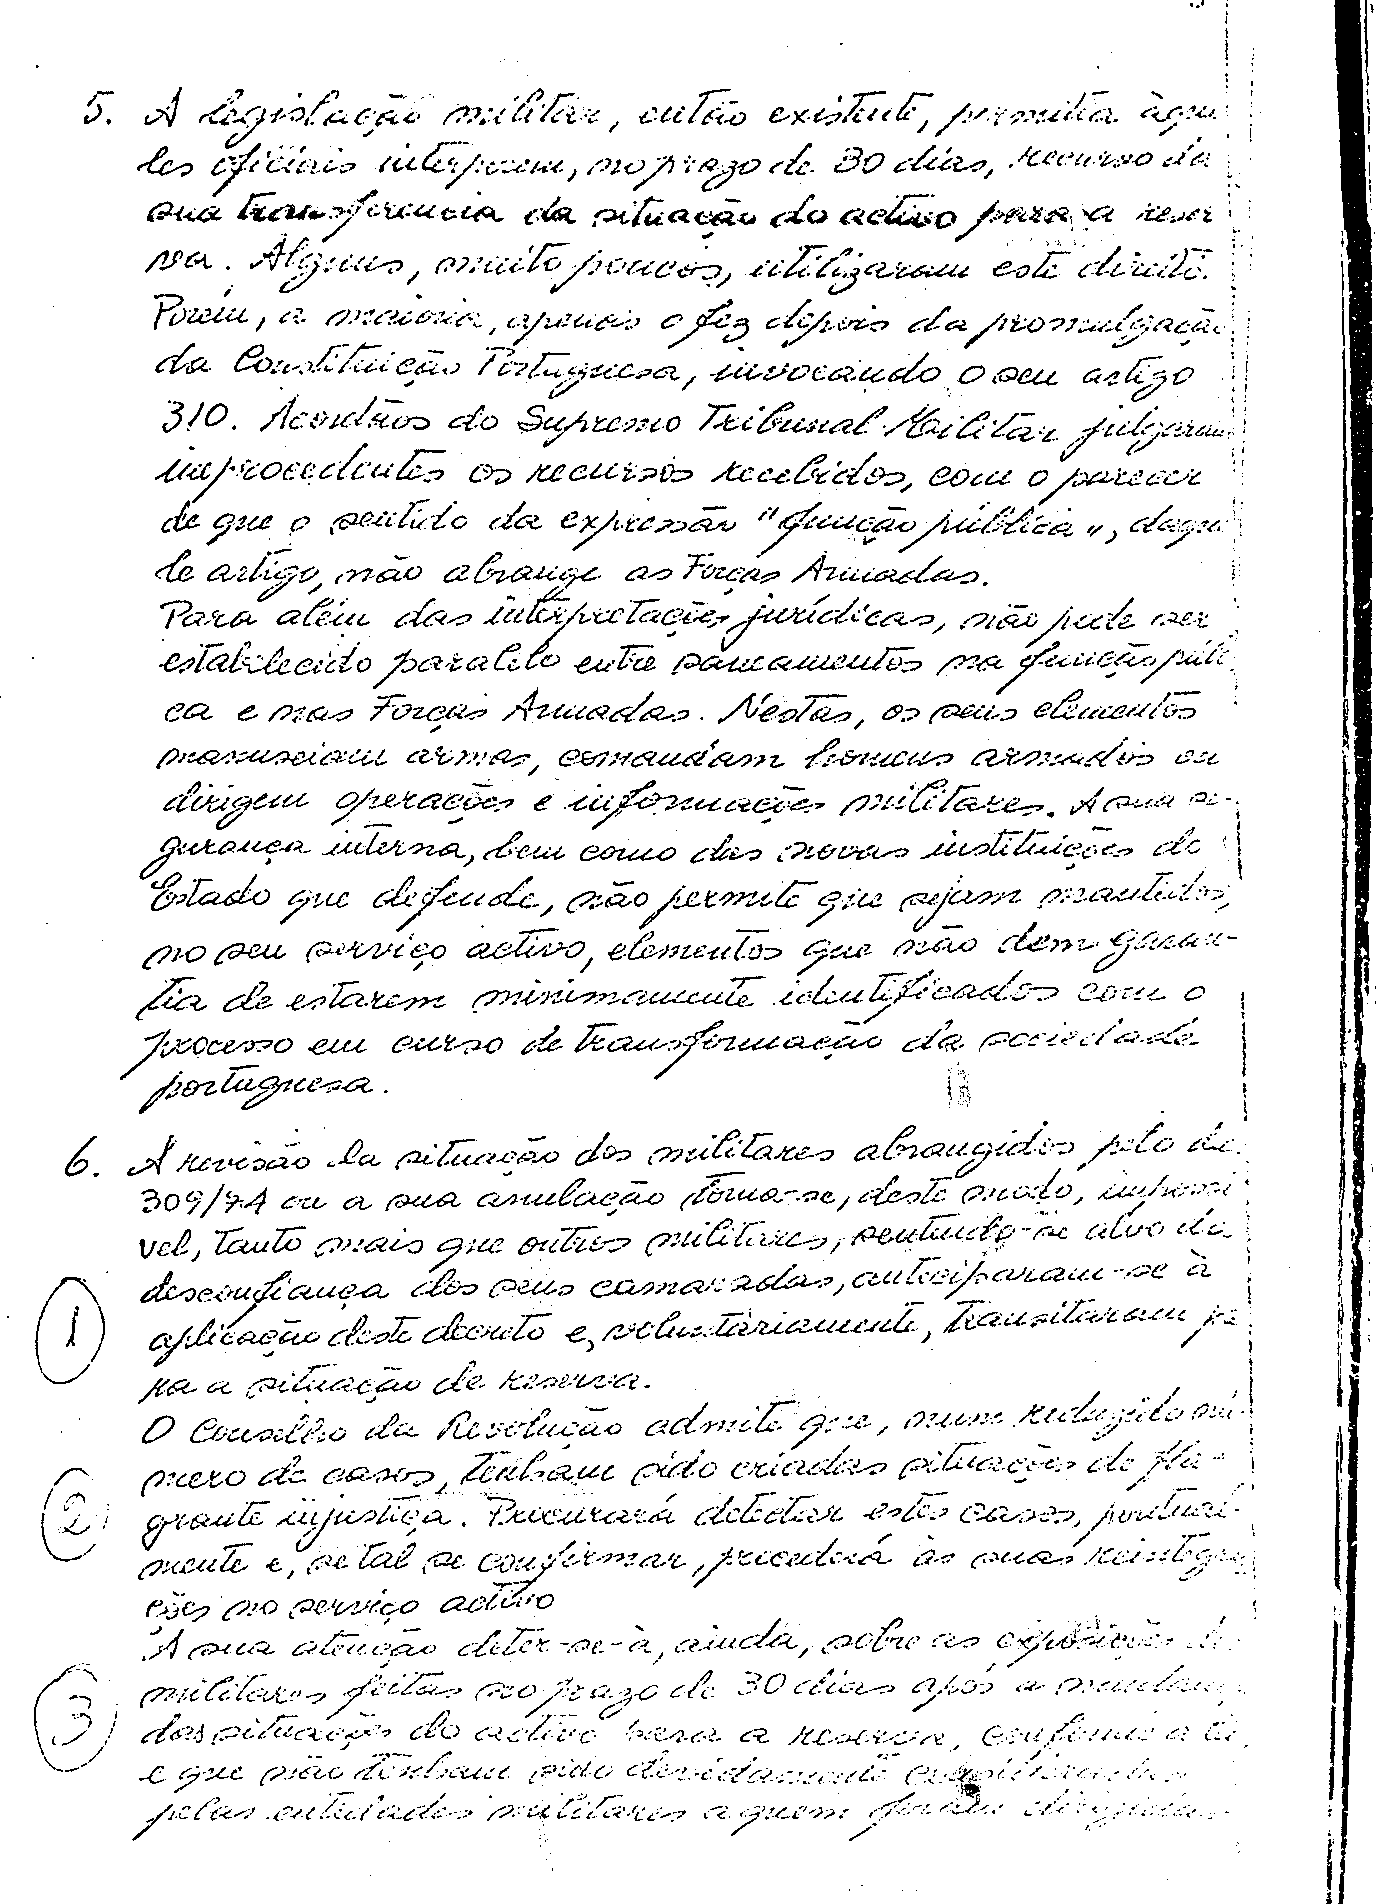 5. A legislação militar, então existente, permitia àque
les oficiais interporem, no prazo de 30 dias, recurso da
sua transferência da situação do activo para a reser
va. Alguns, muito poucos, utilizaram este direito.
Porém, a maioria, apenas o fez depois da promulgação
da Constituição Portuguesa, invocando o seu artigo
310. Acordãos do Supremo Tribunal Militar julgaram
improcedentes os recursos recebidos, com o parecer
de que o sentido da expressão "função pública", daque
le artigo, não abrange as Forças Armadas.
Para além das interpretações jurídicas, não pode ser
estabelecido paralelo entre saneamentos na função públi
ca e nas Forças Armadas. Nestas, os seus elementos
manuseiam armas, comandam homens armados ou
dirigem operações e informações militares. A sua se-
gurança interna, bem como das novas instituições do
Estado que defende, não permite que sejam mantidos,
no seu serviço activo, elementos que não dem garan-
tia de estarem minimamente identificados com o
processo em curso de transformação da sociedade
portuguesa.
6. A revisão da situação dos militares abrangidos pelo dec.
309/74 ou a sua anulação torna-se, deste modo, impossi
vel, tanto mais que outros militares, sentindo-se alvo da
desconfiança dos seus camaradas, anteciparam-se à
1 aplicação deste decreto e, voluntàriamente, transitaram pa
ra a situação de reserva.
O Conselho da Revolução admite que, num reduzido nú-
mero de casos, tenham sido criadas situações de fla-
2 grante injustiça. Procurará detectar estes casos, pontual-
mente e, se tal se confirmar, procederá às suas reintegra
ções no serviço activo
A sua atenção deter-se-à, ainda, sobre as exposições de
militares feitas no prazo de 30 dias após a mudança
3 das situações do activo para a reserva, conforme a lei,
e que não tenham sido devidamente consideradas
pelas entidades militares a quem foram dirigidas